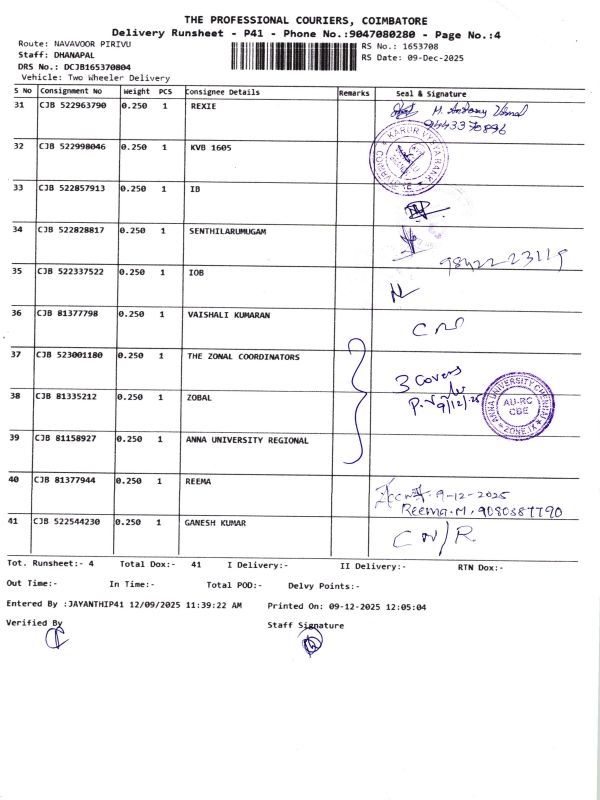 THE PROFESSIONAL COURIERS, COIMBATORE
Delivery Runsheet - P41 - Phone No.:9047080280 - Page No.:4
Route: NAVAVOOR PIRIVU
Staff: DHANAPAL
DRS No.: DCJB165370804
Vehicle: Two Wheeler Delivery
RS No.: 1653708
RS Date: 09-Dec-2025
S No Consignment No Weight PCS Consignee Details Remarks Seal & Signature
31 CJB 522963790 0.250 1 REXIE M. Antony
9443370896
32 CJB 522998046 0.250 1 KVB 1605 KARUR VYSYA BANK
33 CJB 522857913 0.250 1 IB
34 CJB 522828817 0.250 1 SENTHILARUMUGAM
98422 22119
35 CJB 522337522 0.250 1 IOB
36 CJB 81377798 0.250 1 VAISHALI KUMARAN
37 CJB 523001180 0.250 1 THE ZONAL COORDINATORS
3 Covers
38 CJB 81335212 0.250 1 ZOBAL 9/12/25
ANNA UNIVERSITY CHENNAI
AU-RC
CBE
ZONE IX
39 CJB 81158927 0.250 1 ANNA UNIVERSITY REGIONAL
40 CJB 81377944 0.250 1 REEMA 9-12-2025
Reema.M, 9080587790
41 CJB 522544230 0.250 1 GANESH KUMAR CN/R.
Tot. Runsheet:- 4 Total Dox:- 41 I Delivery:- II Delivery:- RTN Dox:-
Out Time:- In Time:- Total POD:- Delvy Points:-
Entered By :JAYANTHIP41 12/09/2025 11:39:22 AM Printed On: 09-12-2025 12:05:04
Verified By Staff Signature